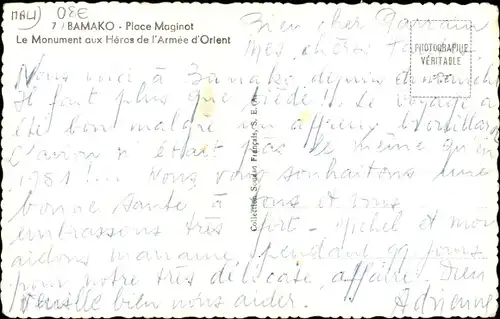 MALI 08€
7 / BAMAKO - Place Maginot
Le Monument aux Héros de l'Armée d'Orient
PHOTOGRAPHIE
VÉRITABLE
Collection Soudan Français, S. E.
Bien cher Parrain
Mes chères
Nous voici à Bamako depuis dimanche
Il fait plus que tiède !! Le voyage a
été bon malgré un affreux brouillard
L'avion n'était pas le même qu'en
1951 !... Nous vous souhaitons une
bonne santé à tous et vous
embrassons très fort - Michel et moi
aidons maname, pendant 99 jours
pour notre très délicate affaire. Dieu
veuille bien nous aider.
Adrienne